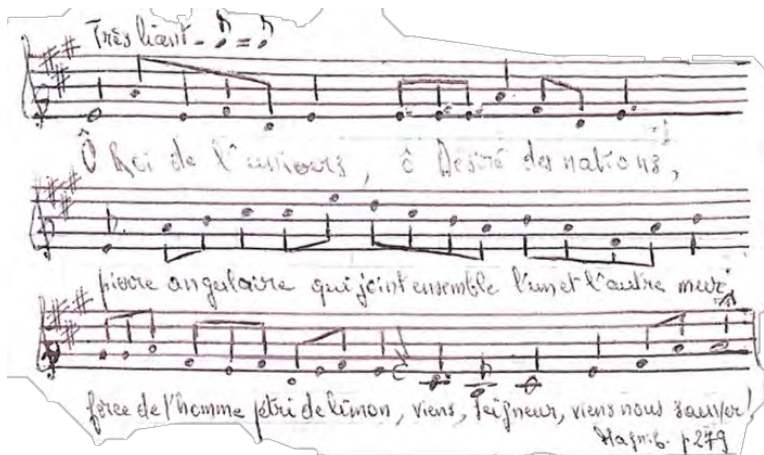 Très liant - ♪ = ♪
Ô Roi de l'univers, ô Désiré des nations,
pierre angulaire qui joint ensemble l'un et l'autre mur,
force de l'homme pétri de limon, viens, Seigneur, viens nous sauver!
p 279